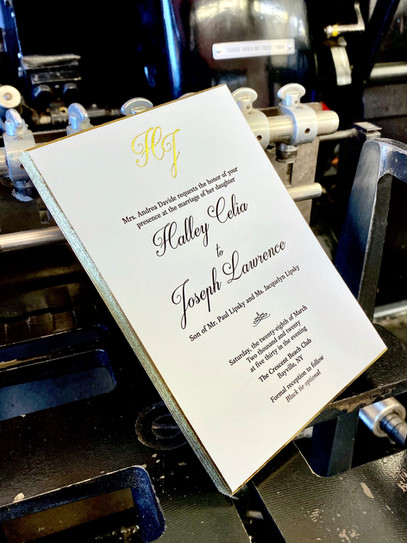 HJ
Mrs. Andrea Davide requests the honor of your
presence at the marriage of her daughter
Halley Celia
to
Joseph Lawrence
Son of Mr. Paul Lipsky and Ms. Jacquelyn Lipsky
Saturday, the twenty-eighth of March
Two thousand and twenty
at five thirty in the evening
The Crescent Beach Club
Bayville, NY
Formal reception to follow
Black tie optional